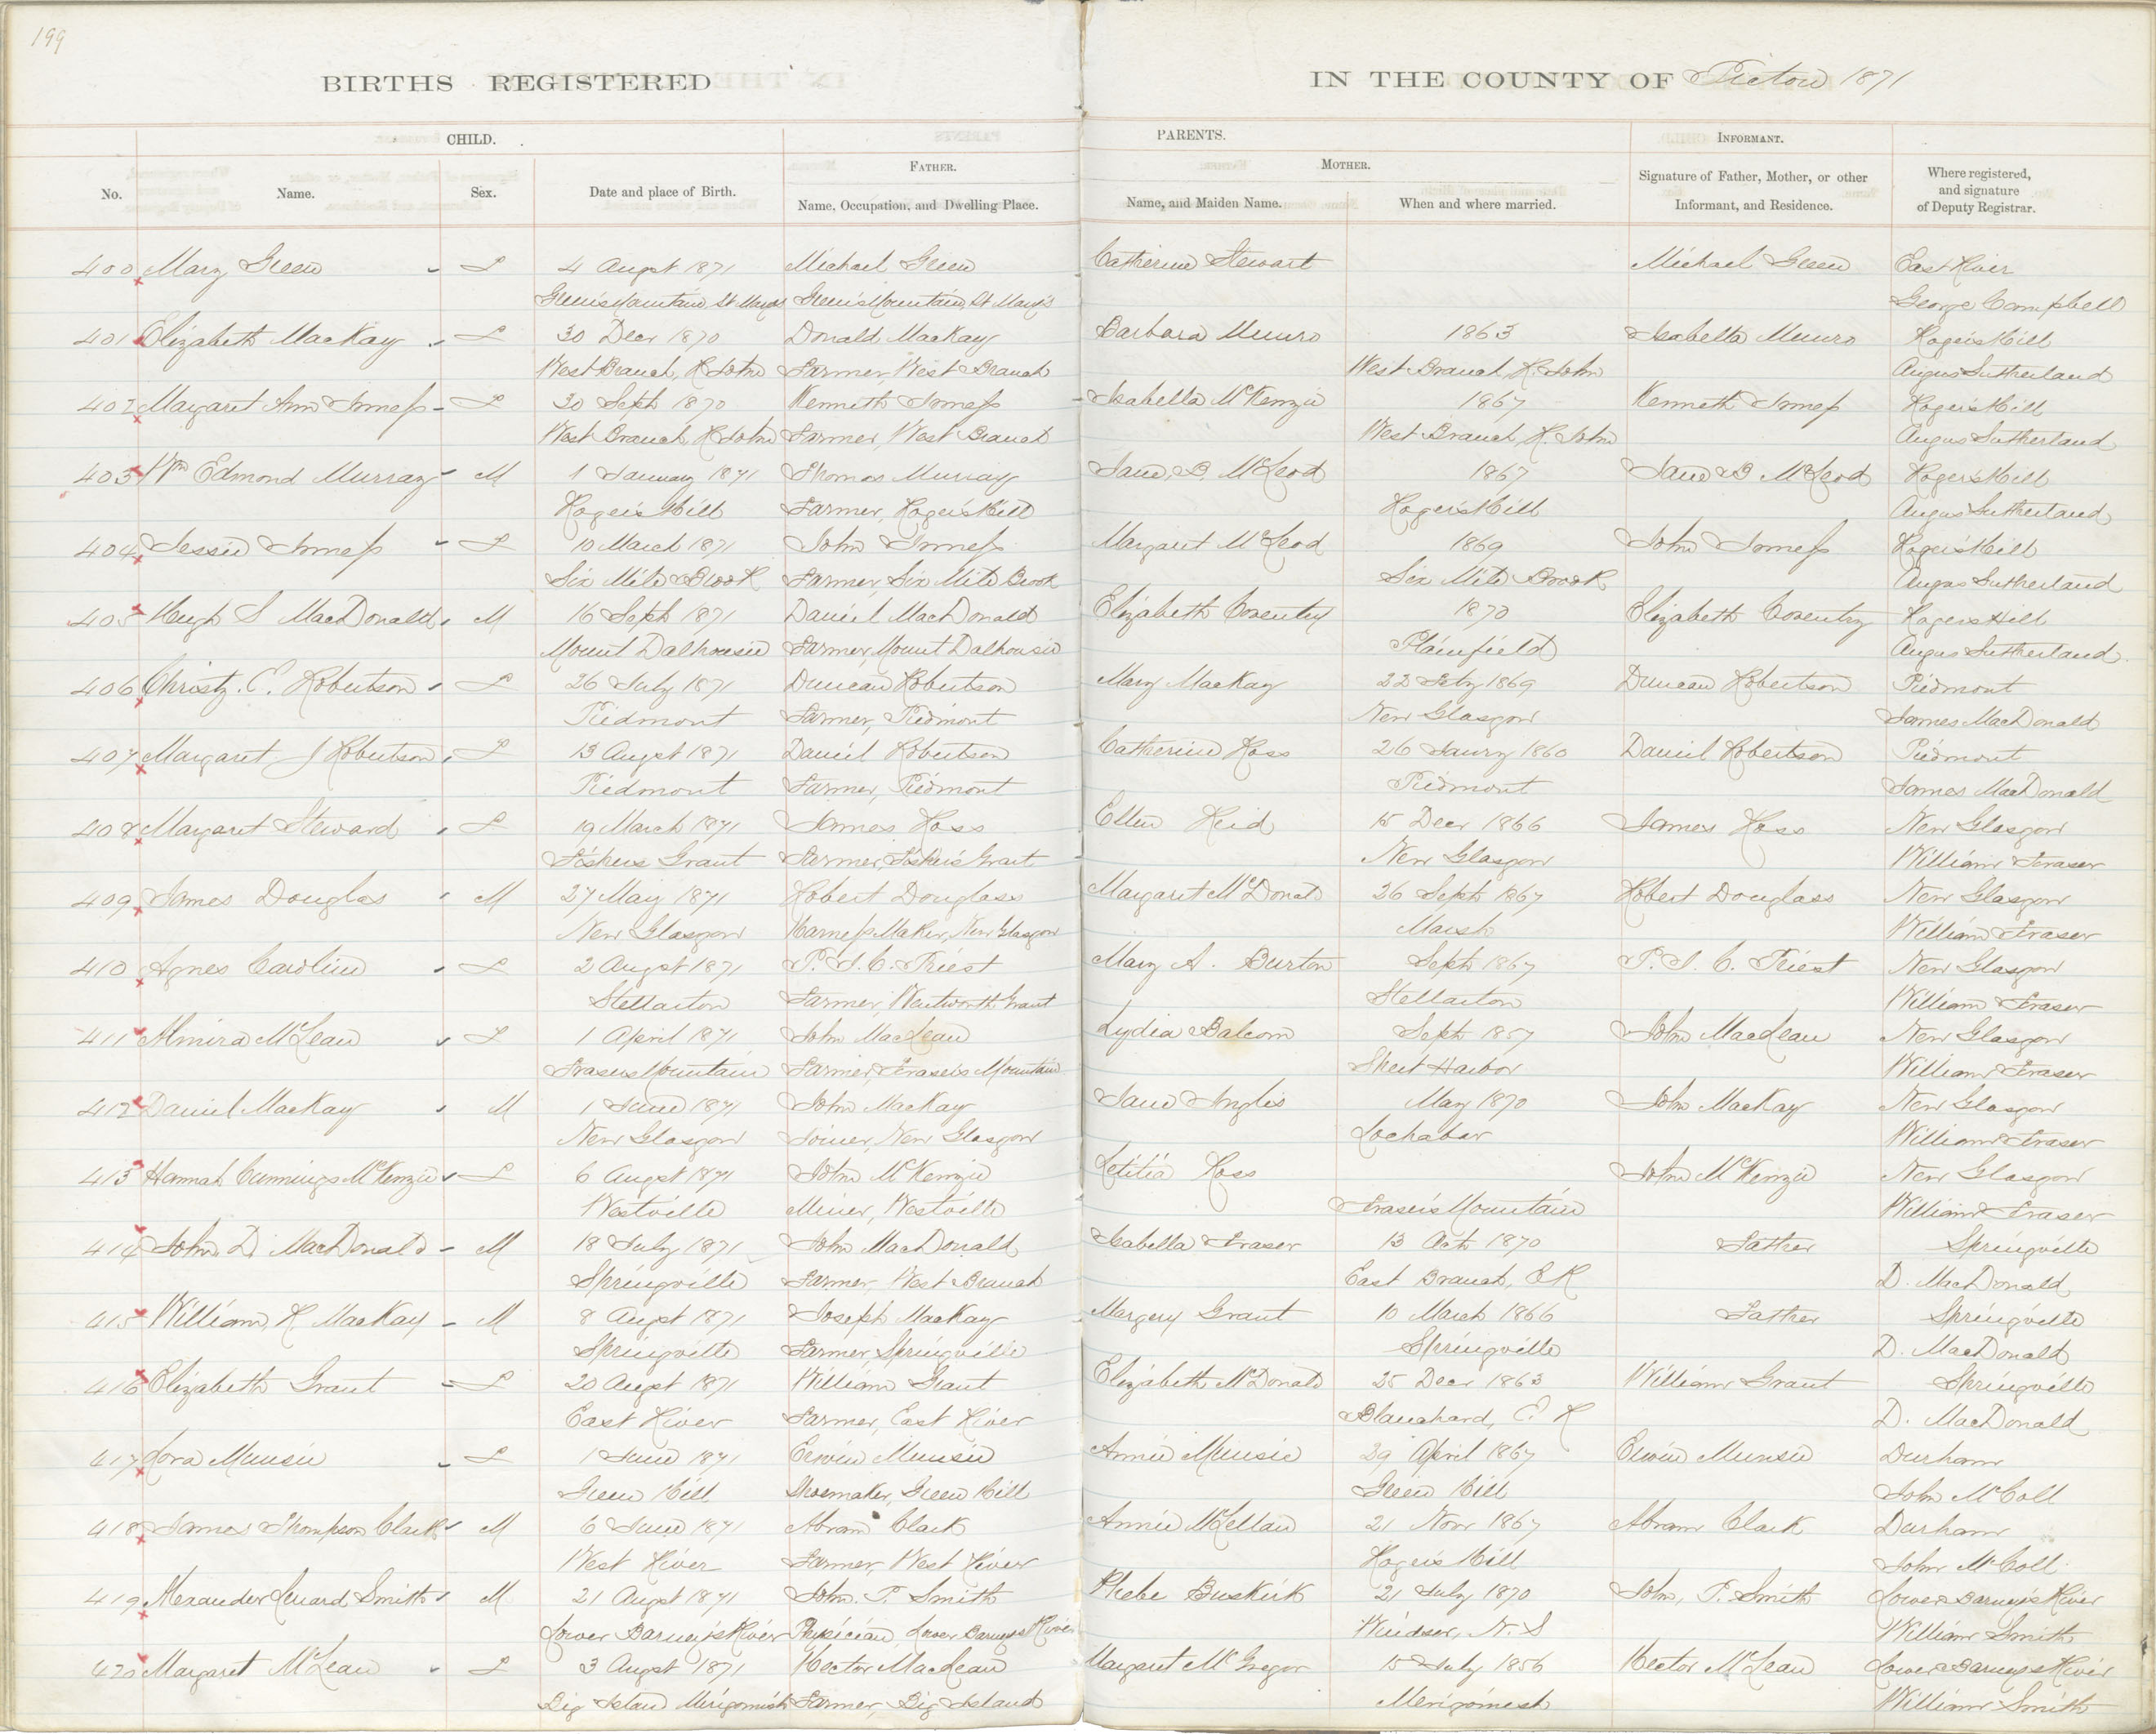 199
BIRTHS REGISTERED IN THE COUNTY OF Pictou 1871
CHILD. PARENTS. INFORMANT.
FATHER. MOTHER.
No. Name. Sex. Date and place of Birth. Name, Occupation, and Dwelling Place. Name, and Maiden Name. When and where married. Signature of Father, Mother, or other Informant, and Residence. Where registered, and signature of Deputy Registrar.
400 Mary Green - F 4 Augst 1871 Michael Green Catherine Stewart Michael Green East River
Green's Mountain, St Marys Green's Mountain, St Mary's George Campbell
401 Elizabeth MacKay - F 30 Decr 1870 Donald MacKay Barbara Munro 1863 Isabella Munro Roger's Hill
West Branch, R. John Farmer, West Branch West Branch, R. John Angus Sutherland
402 Margaret Ann Inness - F 30 Sept 1870 Kenneth Inness Isabella McKenzie 1867 Kenneth Inness Roger's Hill
West Branch, R John Farmer, West Branch West Branch, R. John Angus Sutherland
403 Wm Edmond Murray - M 1 January 1871 Thomas Murray Jane B. McLeod 1867 Jane B McLeod Roger's Hill
Roger's Hill Farmer, Roger's Hill Roger's Hill Angus Sutherland
404 Jessie Inness - F 10 March 1871 John Inness Margaret McLeod 1869 John Inness Roger's Hill
Six Mile Brook Farmer, Six Mile Brook Six Mile Brook Angus Sutherland
405 Hugh S MacDonald - M 16 Sept 1871 Daniel MacDonald Elizabeth Coventry 1870 Elizabeth Coventry Rogers Hill
Mount Dalhousie Farmer, Mount Dalhousie Plainfield Angus Sutherland
406 Christy. C. Robertson - F 26 July 1871 Duncan Robertson Mary MacKay 22 Feby 1869 Duncan Robertson Piedmont
Piedmont Farmer, Piedmont New Glasgow James MacDonald
407 Margaret J Robertson - F 13 Augst 1871 Daniel Robertson Catherine Ross 26 Janry 1860 Daniel Robertson Piedmont
Piedmont Farmer, Piedmont Piedmont James MacDonald
408 Margaret Steward - F 19 March 1871 James Ross Ellen Reid 15 Decr 1866 James Ross New Glasgow
Fishers Grant Farmer, Fisher's Grant New Glasgow William Fraser
409 James Douglas - M 27 May 1871 Robert Douglass Margaret McDonald 26 Sept 1867 Robert Douglass New Glasgow
New Glasgow Harness Maker, New Glasgow Marsh William Fraser
410 Agnes Caroline - F 2 Augst 1871 P. I. C. Priest Mary A. Burton Sept 1867 P. I. C. Priest New Glasgow
Stellarton Farmer, Wentworth Grant Stellarton William Fraser
411 Almira McLean - F 1 April 1871 John MacLean Lydia Balcom Sept 1857 John MacLean New Glasgow
Frasers Mountain Farmer, Fraser's Mountain Sheet Harbor William Fraser
412 Daniel MacKay - M 1 June 1871 John MacKay Jane Inglis May 1870 John MacKay New Glasgow
New Glasgow Joiner, New Glasgow Lochabar William Fraser
413 Hannah Cummings McKenzie - F 6 Augst 1871 John McKenzie Letitia Ross John McKenzie New Glasgow
Westville Miner, Westville Fraser's Mountain William Fraser
414 John D MacDonald - M 18 July 1871 John MacDonald Isabella Fraser 13 Oct 1870 Father Springville
Springville Farmer, West Branch East Branch, E R D. MacDonald
415 William R MacKay - M 8 Augst 1871 Joseph MacKay Margery Grant 10 March 1866 Father Springville
Springville Farmer, Springville Springville D. MacDonald
416 Elizabeth Grant - F 20 Augst 1871 William Grant Elizabeth McDonald 25 Decr 1863 William Grant Springville
East River Farmer, East River Blanchard, E. R D. MacDonald
417 Lora Munsie - F 1 June 1871 Erwin Munsie Annie Munsie 29 April 1867 Erwin Munsie Durham
Green Hill Shoemaker, Green Hill Green Hill John McColl
418 James Thompson Clark - M 6 June 1871 Abram Clark Annie McLellan 21 Novr 1867 Abram Clark Durham
West River Farmer, West River Roger's Hill John McColl
419 Alexander Lenard Smith - M 21 Augst 1871 John. P. Smith Phebe Buskirk 21 July 1870 John, P. Smith Lower Barney's River
Lower Barney's River Physician, Lower Barneys River Windsor, N. S William Smith
420 Margaret McLean - F 3 Augst 1871 Hector MacLean Margaret McGregor 15 July 1856 Hector McLean Lower Barneys River
Big Island Merigomish Farmer, Big Island Merigomish William Smith